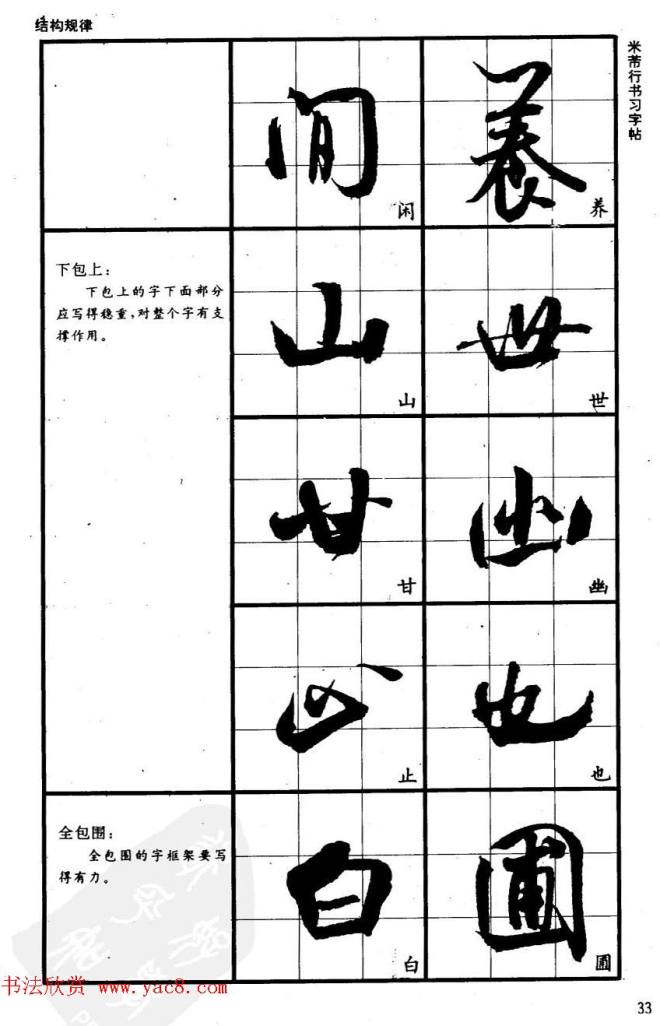 结构规律
米芾行书习字帖
閒
闲
養
养
下包上：
下包上的字下面部分
应写得稳重，对整个字有支
撑作用。
山
山
世
世
甘
甘
幽
幽
止
止
也
也
全包围：
全包围的字框架要写
得有力。
白
白
圃
圃
书法欣赏 www.yac8.com
33